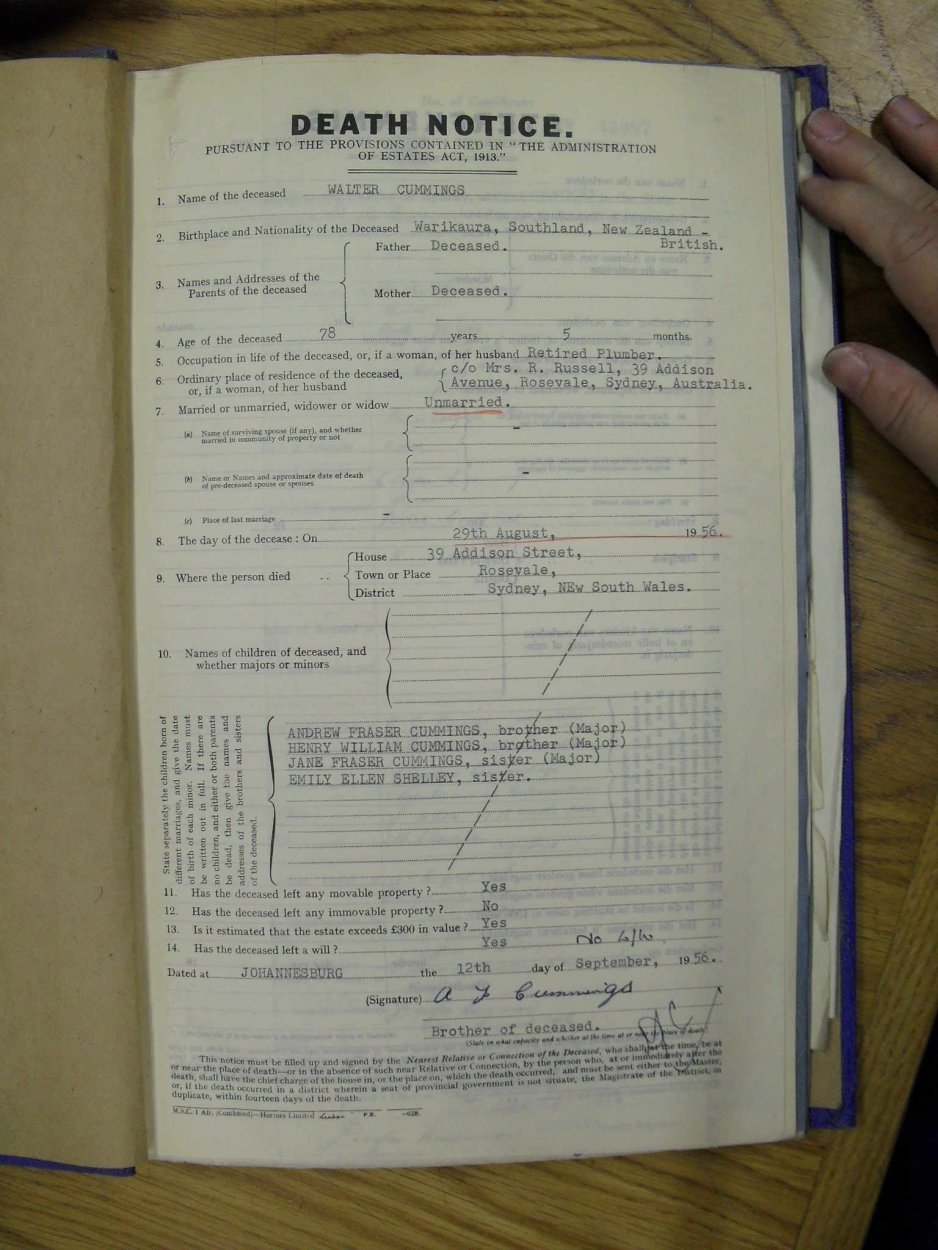 DEATH NOTICE.
PURSUANT TO THE PROVISIONS CONTAINED IN "THE ADMINISTRATION
OF ESTATES ACT, 1913."
1. Name of the deceased WALTER CUMMINGS
2. Birthplace and Nationality of the Deceased Warikaura, Southland, New Zealand -
British.
3. Names and Addresses of the
Parents of the deceased
Father Deceased.
Mother Deceased.
4. Age of the deceased 78 years 5 months.
5. Occupation in life of the deceased, or, if a woman, of her husband Retired Plumber.
6. Ordinary place of residence of the deceased,
or, if a woman, of her husband
c/o Mrs. R. Russell, 39 Addison
Avenue, Rosevale, Sydney, Australia.
7. Married or unmarried, widower or widow Unmarried.
(a) Name of surviving spouse (if any), and whether
married in community of property or not -
(b) Name or Names and approximate date of death
of pre-deceased spouse or spouses -
(c) Place of last marriage -
8. The day of the decease : On 29th August, 1956.
9. Where the person died ..
House 39 Addison Street,
Town or Place Rosevale,
District Sydney, NEw South Wales.
10. Names of children of deceased, and
whether majors or minors
State separately the children born of
different marriages, and give the date
of birth of each minor. Names must
be written out in full. If there are
no children, and either or both parents
be dead, then give the names and
addresses of the brothers and sisters
of the deceased.
ANDREW FRASER CUMMINGS, brother (Major)
HENRY WILLIAM CUMMINGS, brother (Major)
JANE FRASER CUMMINGS, sister (Major)
EMILY ELLEN SHELLEY, sister.
11. Has the deceased left any movable property ? Yes
12. Has the deceased left any immovable property ? No
13. Is it estimated that the estate exceeds £300 in value ? Yes
14. Has the deceased left a will ? Yes No
Dated at JOHANNESBURG the 12th day of September, 1956.
(Signature) A F Cummings
Brother of deceased.
(State in what capacity and whether at the time at or near the place of death)
This notice must be filled up and signed by the Nearest Relative or Connection of the Deceased, who shall at the time, be at
or near the place of death—or in the absence of such near Relative or Connection, by the person who, at or immediately after the
death, shall have the chief charge of the house in, or the place on, which the death occurred, and must be sent either to the Master,
or, if the death occurred in a district wherein a seat of provincial government is not situate, the Magistrate of the District, in
duplicate, within fourteen days of the death.
M.S.C. 1 Afr. (Combined)—Hortors Limited P.R. —628.